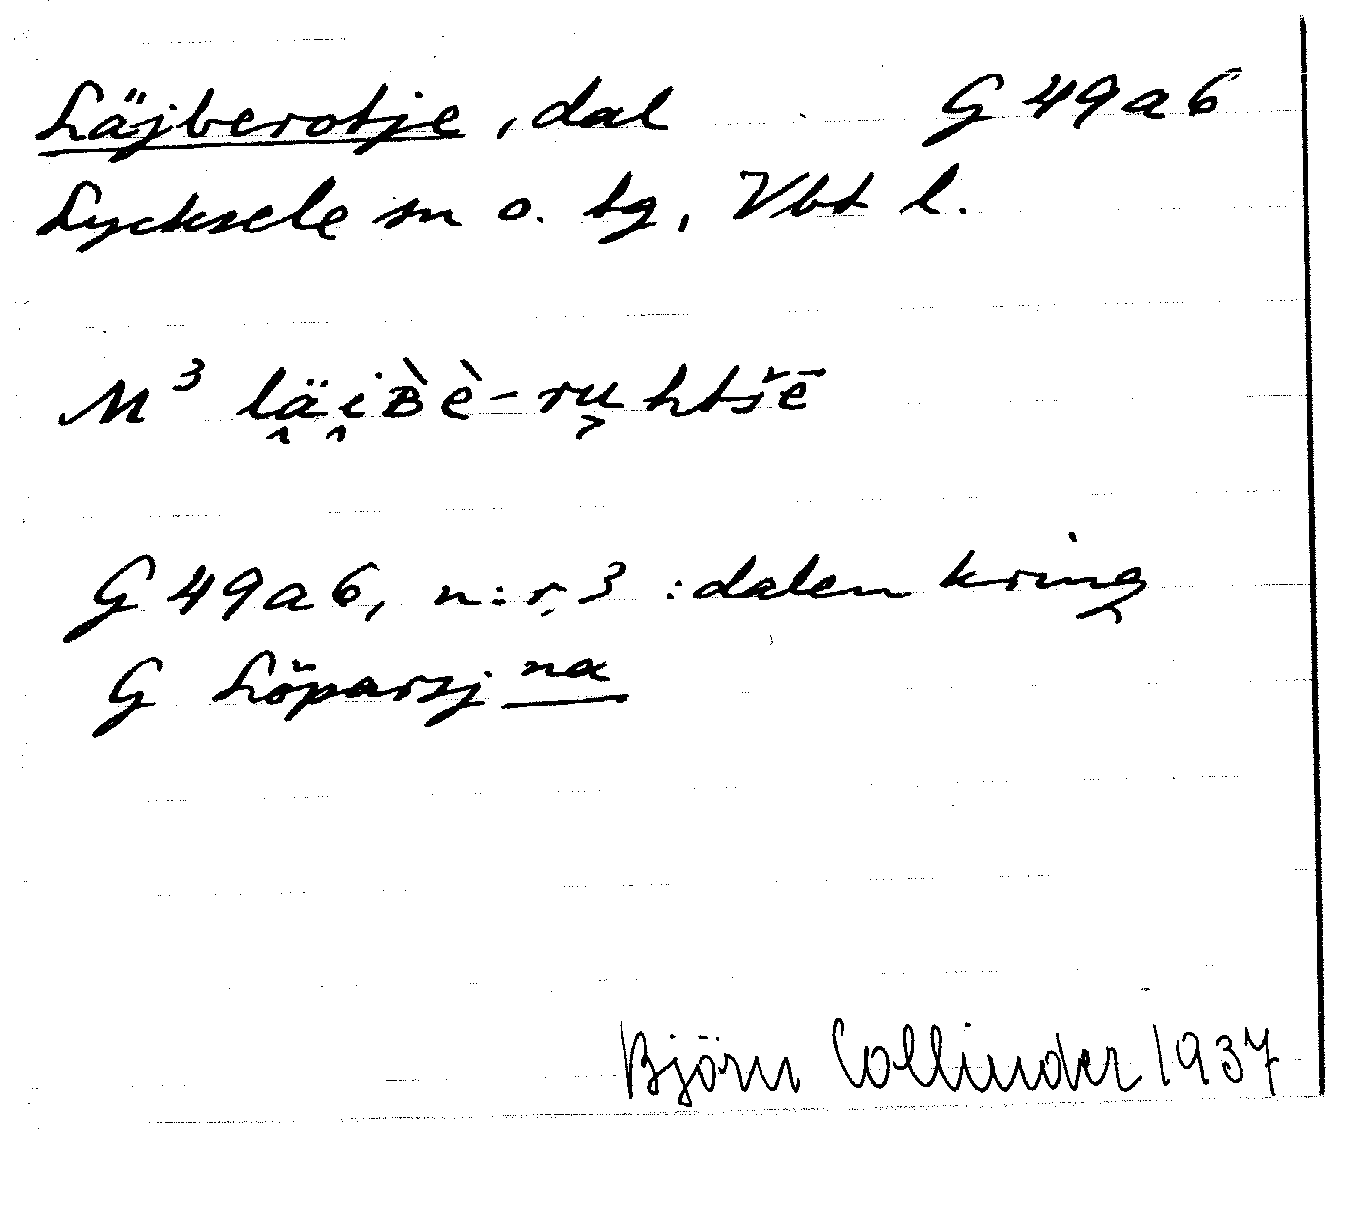 Läjberotje, dal G 49 a 6
Lycksele sn o. tg, Vbt l.
M³ lä̭i̭ʙ̀è-ru̬htšē
G 49 a 6, n:r 3 : dalen kring
G Löparsj na
Björn Collinder 1937